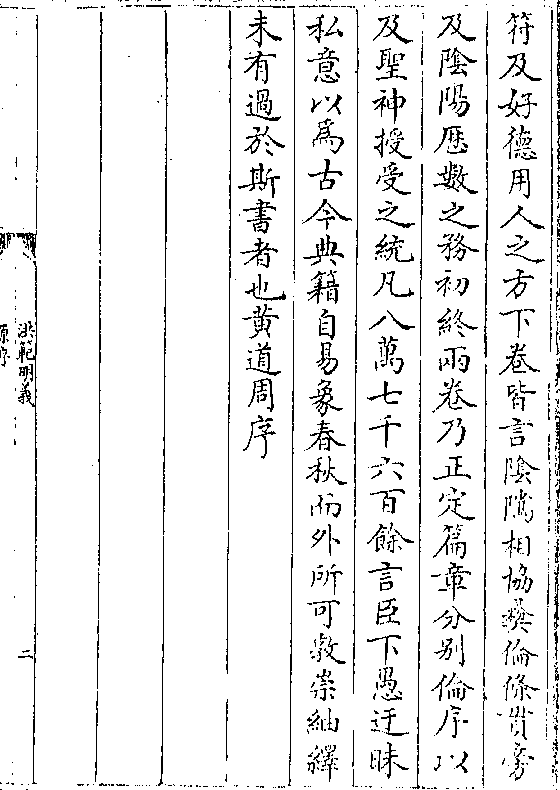 符及好德用人之方下卷皆言陰隲相協彝倫條貫旁
及陰陽厯數之務初終兩卷乃正定篇章分别倫序以
及聖神授受之統凡八萬七千六百餘言臣下愚迂昧
私意以爲古今典籍自易象春秋而外所可敦崇紬繹
未有過於斯書者也黄道周序
洪範明義
原序
二